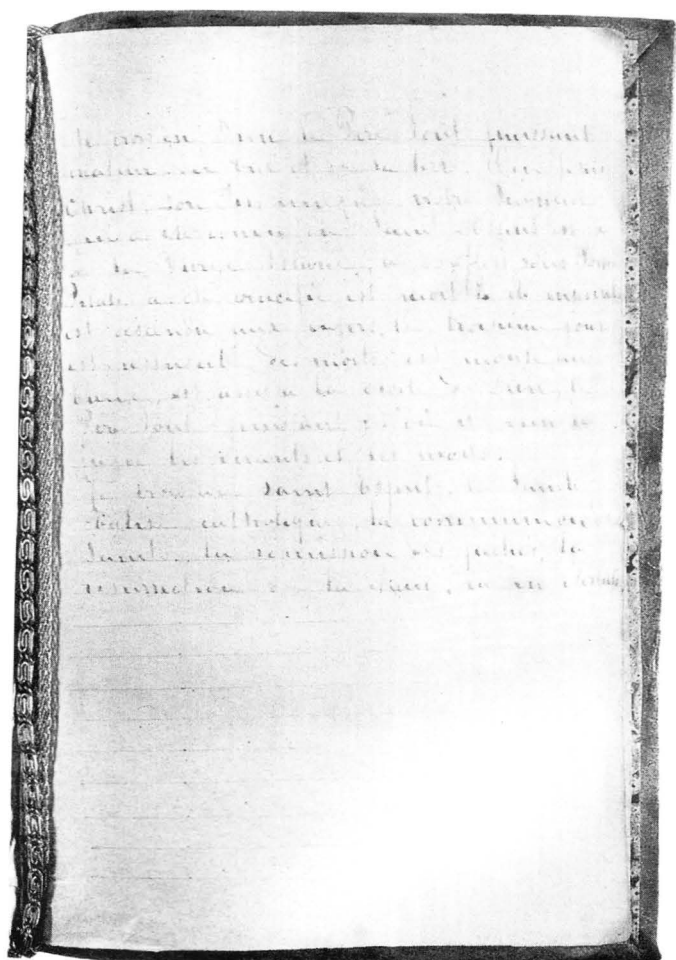 Je crois en Dieu le Père tout puissant
créateur du ciel et de la terre. Et en Jésus
Christ son fils unique notre Seigneur
qui a été conçu du Saint Esprit est né
de la Vierge Marie, a souffert sous Ponce
Pilate a été crucifié est mort et a été enseveli
est descendu aux enfers, le troisième jour
est ressuscité des morts est monté aux
cieux, est assis à la droite de Dieu, le
Père tout puissant d'où il viendra
juger les vivants et les morts.
Je crois au Saint Esprit, la Sainte
église catholique, la communion des
Saints, la rémission des péchés, la
résurrection de la chair, la vie éternelle